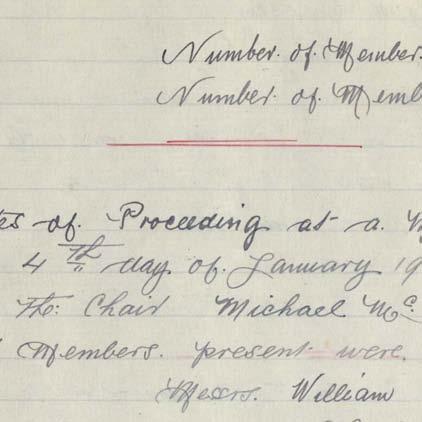 Number. of. Member.
Number. of. Memb
tes of. Proceeding at a. M
4th day of. January 19
The: Chair Michael Mc.
Members. present were.
Messrs. William